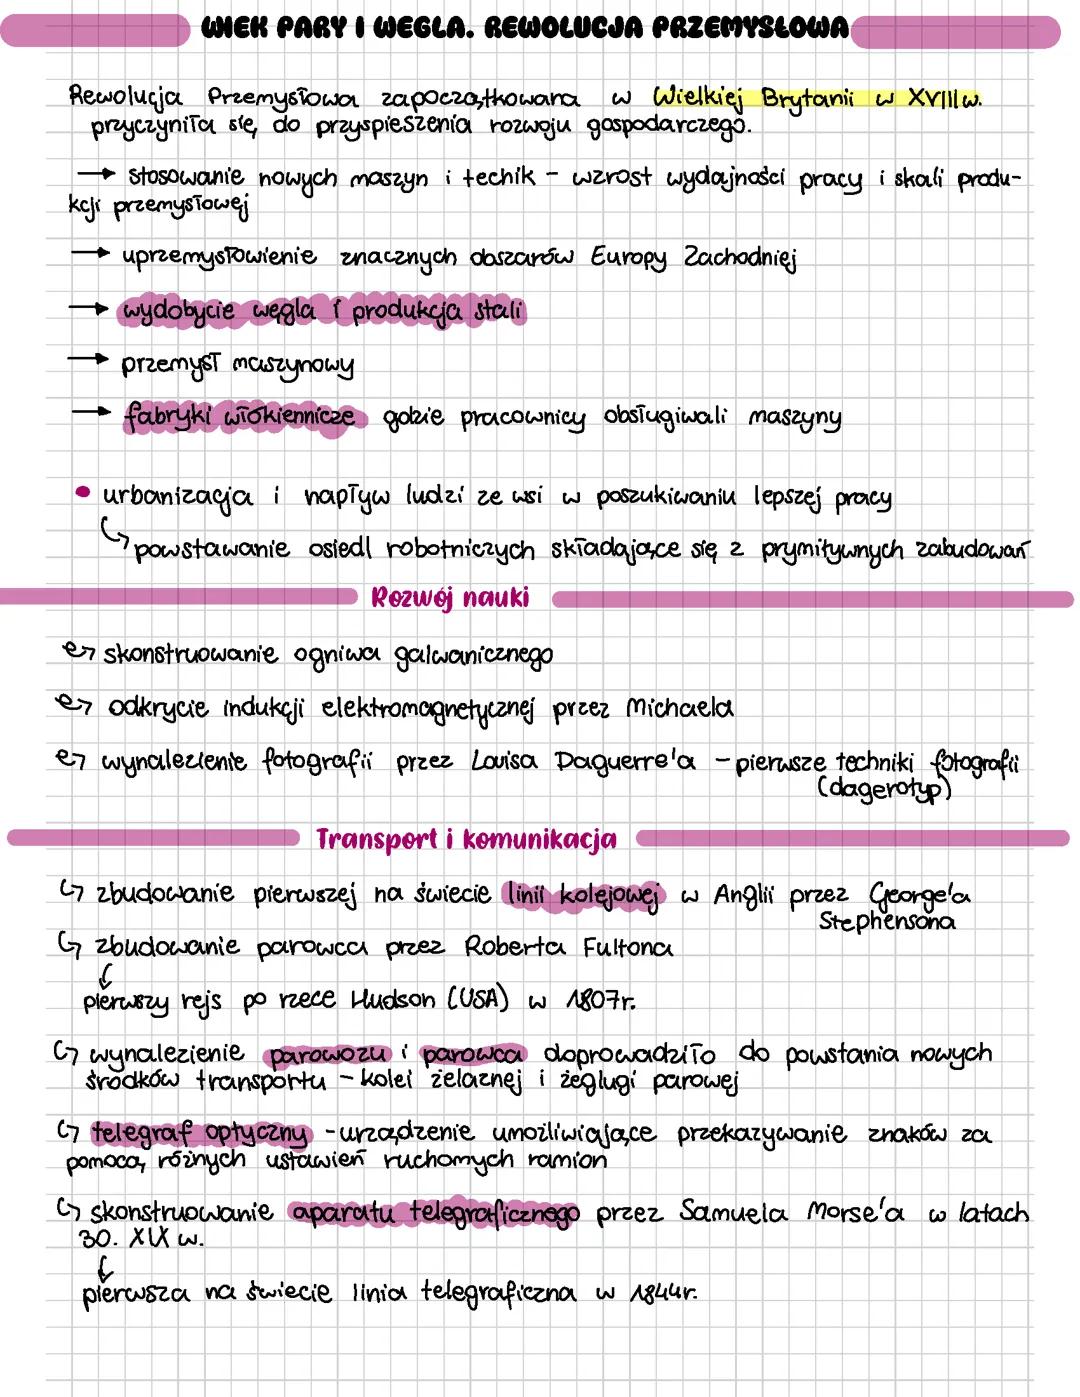 WIEK PARY I WEGLA. REWOLUCJA PRZEMYSŁOWA
Rewolucja Przemysłowa zapoczątkowana w Wielkiej Brytanii w XVIII w.
przyczyniła się do przyspieszenia rozwoju gospodarczego.
→ stosowanie nowych maszyn i techik - wzrost wydajności pracy i skali produ-
kcji przemysłowej
→ uprzemysłowienie znacznych obszarów Europy Zachodniej
→ wydobycie węgla i produkcja stali
→ przemysł maszynowy
→ fabryki włókiennicze gdzie pracownicy obsługiwali maszyny
• urbanizacja i napływ ludzi ze wsi w poszukiwaniu lepszej pracy
↪ powstawanie osiedl robotniczych składające się z prymitywnych zabudowań
Rozwój nauki
skonstruowanie ogniwa galwanicznego
odkrycie indukcji elektromagnetycznej przez Michaela
wynalezienie fotografii przez Louisa Daguerre'a - pierwsze techniki fotografii
(dagerotyp)
Transport i komunikacja
zbudowanie pierwszej na świecie linii kolejowej w Anglii przez George'a
Stephensona
zbudowanie parowca przez Roberta Fultona
pierwszy rejs po rzece Hudson (USA) w 1807r.
wynalezienie parowozu i parowca doprowadziło do powstania nowych
środków transportu - kolei żelaznej i żeglugi parowej
telegraf optyczny - urządzenie umożliwiające przekazywanie znaków za
pomocą różnych ustawień ruchomych ramion
skonstruowanie aparatu telegraficznego przez Samuela Morse'a w latach
30. XIX w.
pierwsza na świecie linia telegraficzna w 1844r.